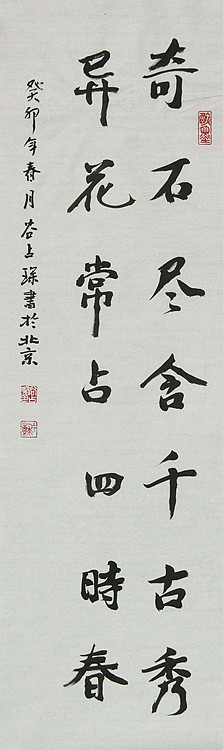 奇石尽含千古秀
异花常占四時春
癸卯年春月谷占琛書於北京